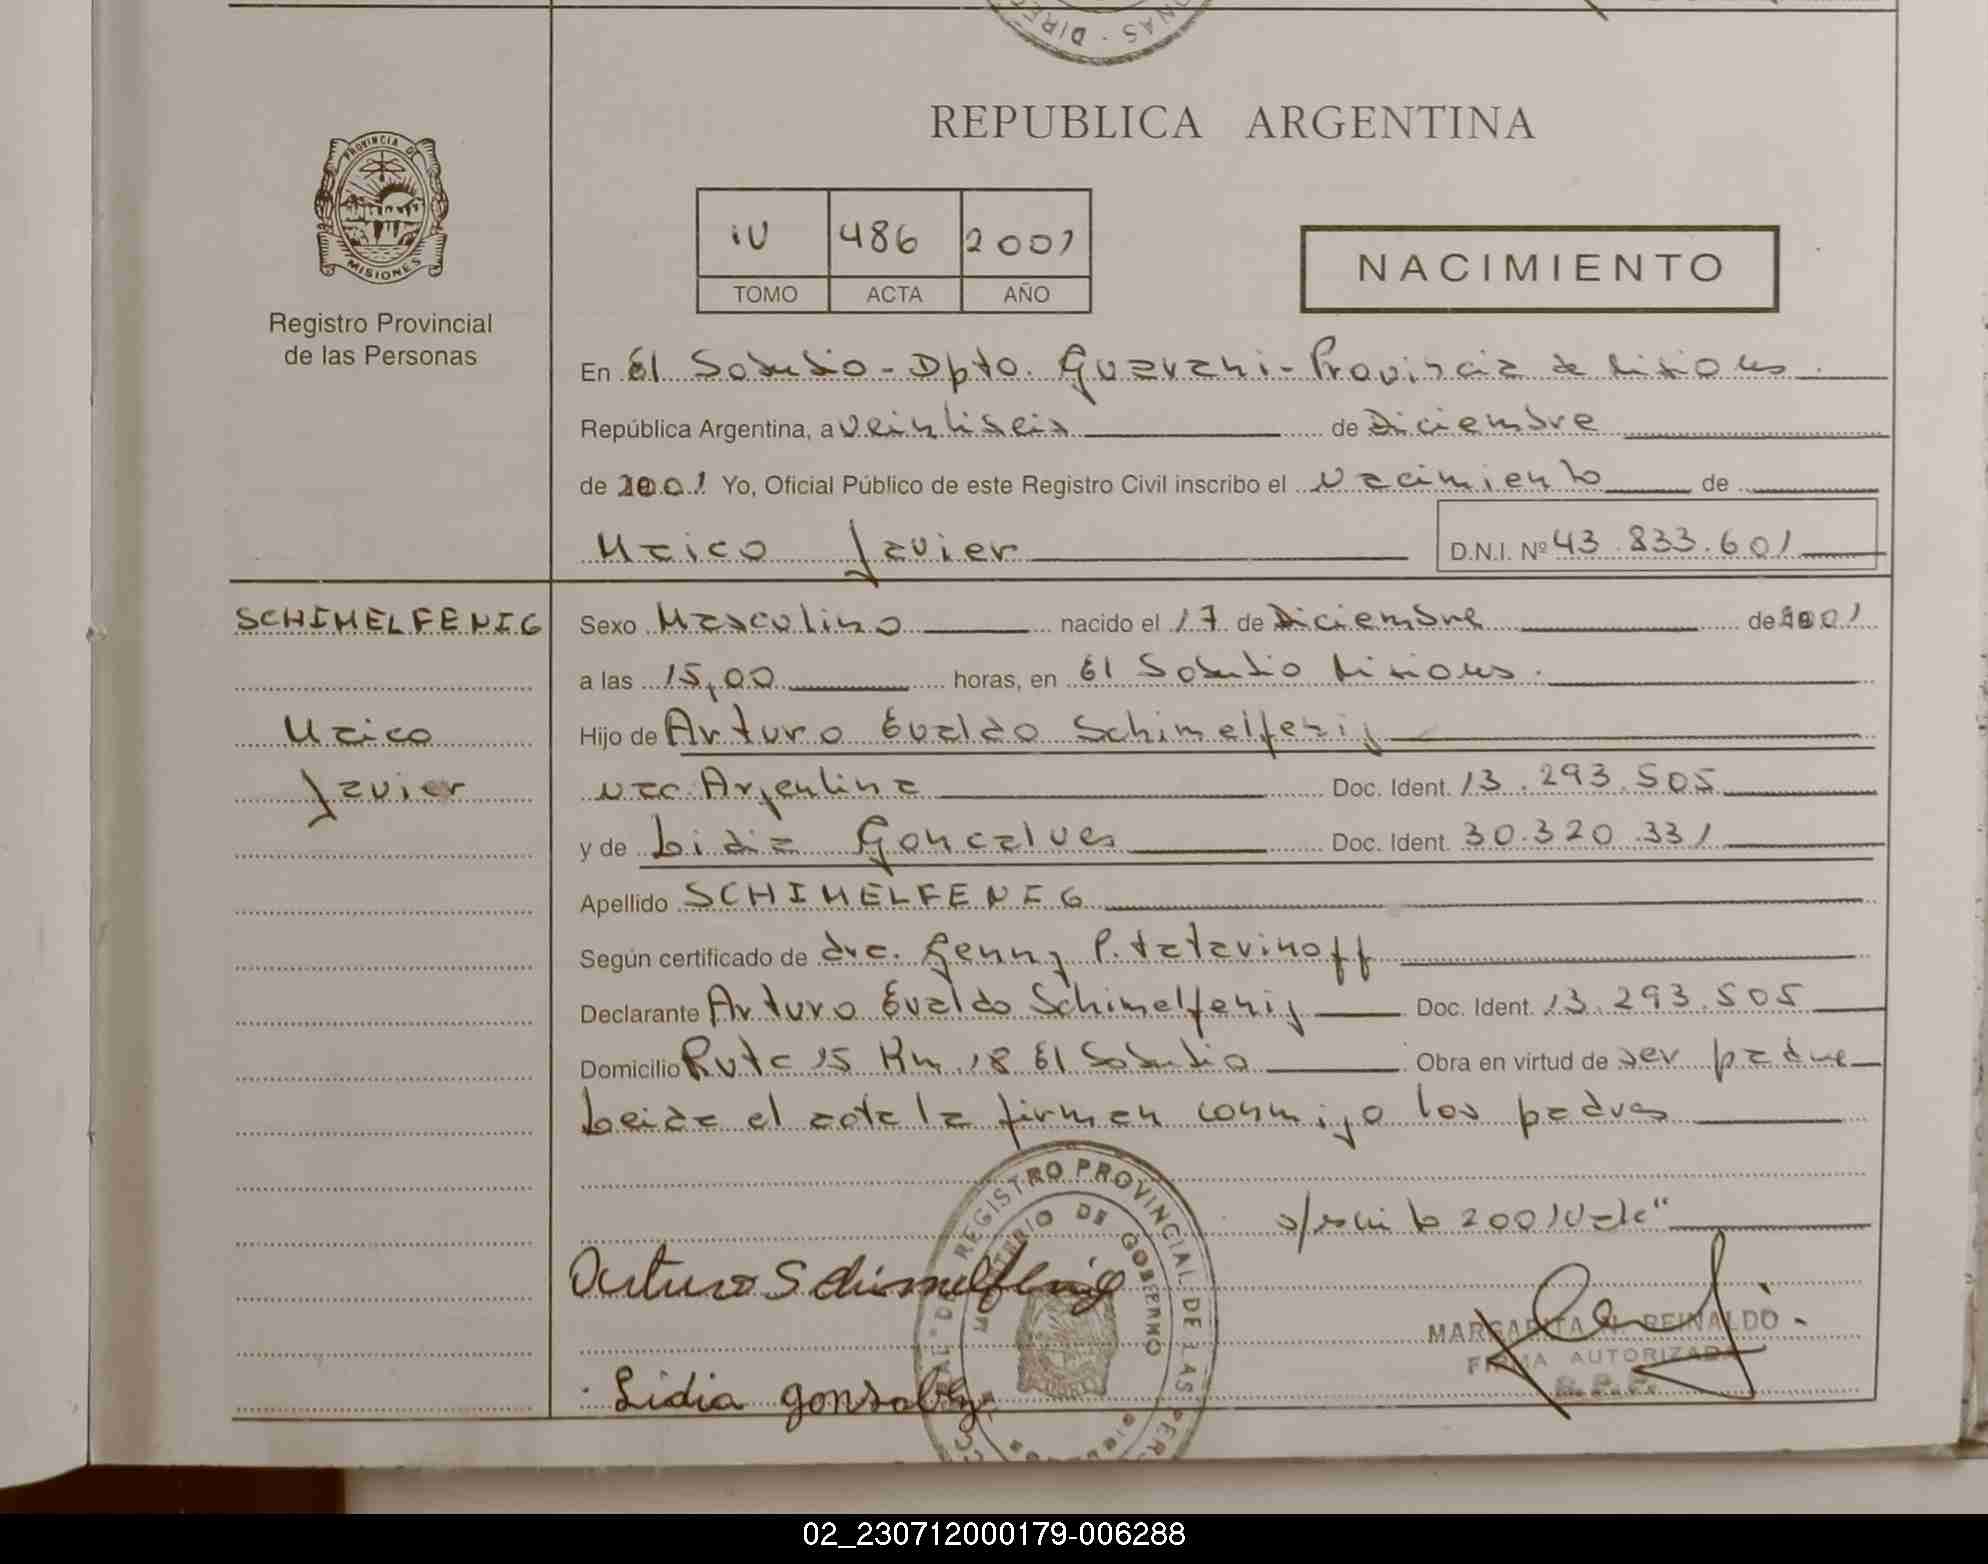 DIRE
ONAS
REPUBLICA ARGENTINA
PROVINCIA DE
MISIONES
Registro Provincial
de las Personas
IV 486 2001
TOMO ACTA AÑO
NACIMIENTO
En El Soberbio - Dpto. Guarani - Provincia de Misiones.
República Argentina, a veintiseis de Diciembre
de 2001 Yo, Oficial Público de este Registro Civil inscribo el Nacimiento de
Maico Javier D.N.I. Nº 43.833.601
SCHIMELFENIG
Maico
Javier
Sexo Masculino nacido el 17 de Diciembre de 2001
a las 15,00 horas, en El Soberbio Misiones.
Hijo de Arturo Evaldo Schimelfenig
nac. Argentina Doc. Ident. 13.293.505
y de Lidia Goncalves Doc. Ident. 30.320.331
Apellido SCHIMELFENIG
Según certificado de dra. Genny P. tatarinoff
Declarante Arturo Evaldo Schimelfenig Doc. Ident. 13.293.505
Domicilio Ruta 15 Km 18 El Soberbio Obra en virtud de ser padre
Leida el acta la firman conmigo los padres
s/escrito 2001 Vale"
REGISTRO PROVINCIAL DE LAS PERS
MINISTERIO DE GOBIERNO
Arturo Schimelfenig
Lidia
MARGARITA REINALDO
FIRMA AUTORIZADA
R.P.P.
02_230712000179-006288